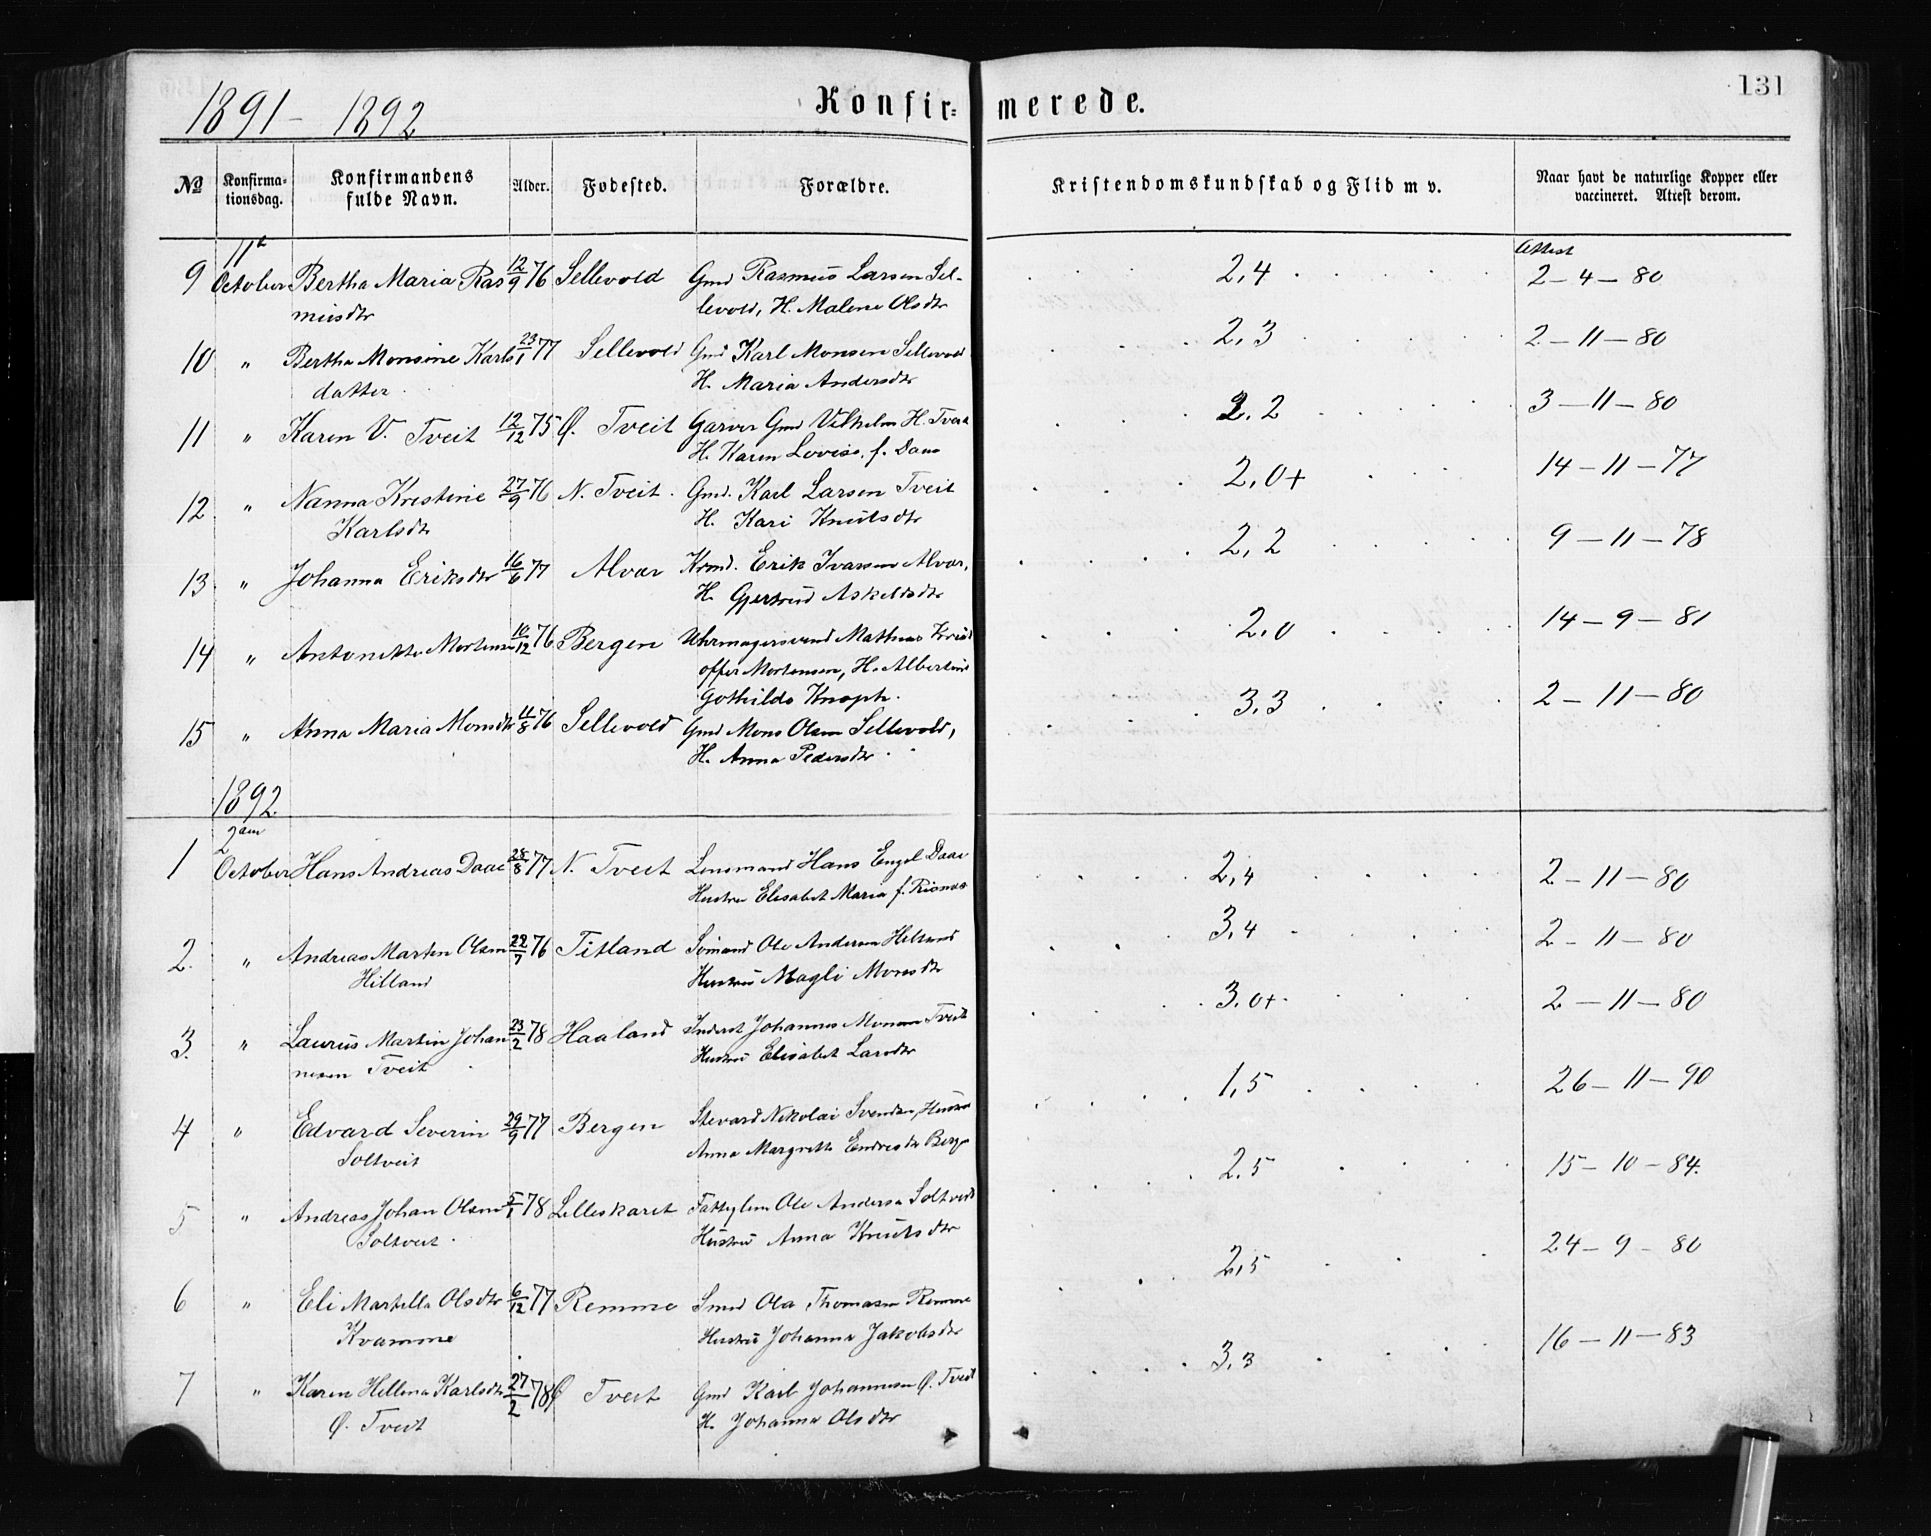 1891 – 1892 Konfir- merede. 131
No Konfirma-tionsdag. Konfirmandens fulde Navn. Alder. Fødested. Forældre. Kristendomskundskab og Flid m v. Naar havt de naturlige Kopper eller vaccineret. Attest derom.
11te Attest
9 October Bertha Maria Ras 12/9 76 Sellevold Gmd Rasmus Larsen Sel- 2,4 2-4-80
musdtr levold, H. Malene Olsdtr
10 " Bertha Monsine Karls 23/1 77 Sellevold Gmd Karl Monsen Sellevold 2,3 2-11-80
datter H. Maria Andersdtr
11 " Karen V. Tveit 12/12 75 Ø. Tveit Garver Gmd Vilhelm H. Tveit 2.2 3-11-80
H. Karen Lovise f. Daae
12 " Nanna Kristine 27/9 76 N. Tveit. Gmd. Karl Larsen Tveit 2,0+ 14-11-77
Karlsdtr H. Kari Knutsdtr
13 " Johanna Eriksdtr 16/6 77 Alvær Krmd. Erik Ivarsen Alvær, 2,2 9-11-78
H. Gjertrud Askeldsdtr
14 " Antonette Mortensen 10/12 76 Bergen Uhrmagersvend Mathias Krist 2,0 14-9-81
offer Mortensen, H. Albertine
Gothilde Knoph.
15 " Anna Maria Monsdtr 11/8 76 Sellevold Gmd Mons Olsen Sellevold, 3.3 2-11-80
H. Anna Pedersdtr
1892.
2den
1 October Hans Andreas Daae 28/8 77 N. Tveit Lensmand Hans Engel Daae 2,4 2-11-80
Hustru Elisabet Maria f.
2. " Andreas Martin Olsen 22/7 76 Titland Sømand Ole Andersen Hilland 3,4 2-11-80
Hilland Hustru Magli Monsdtr
3. " Laurus Martin Johan 23/2 78 Haaland Inderst Johannes Monsen Tveit 3.0+ 2-11-80
nesen Tveit Hustru Elisabet Larsdtr
4 " Edvard Severin 29/9 77 Bergen Stevard Nikolai Svendsen, Hustru 1,5 26-11-90
Soltveit Anna Margrethe Endresdtr Bergen
5 " Andreas Johan Olsen 5/1 78 Lilleskaret Fattiglem Ole Andersen Soltveit 2.5 15-10-84.
Soltveit. Hustru Anna Knutsdtr
6 " Eli Martella Olsdtr 6/12 77 Remme Smed Ola Thomasen Remme 2,5 24-9-80
Kvamme Hustru Johanna Jakobsdtr
7 " Karen Hellena Karlsdtr 27/2 78 Ø Tveit Gmd Karl Johannesen Ø. Tveit 3,3 16-11-83
Ø. Tveit H. Johanna Olsdtr